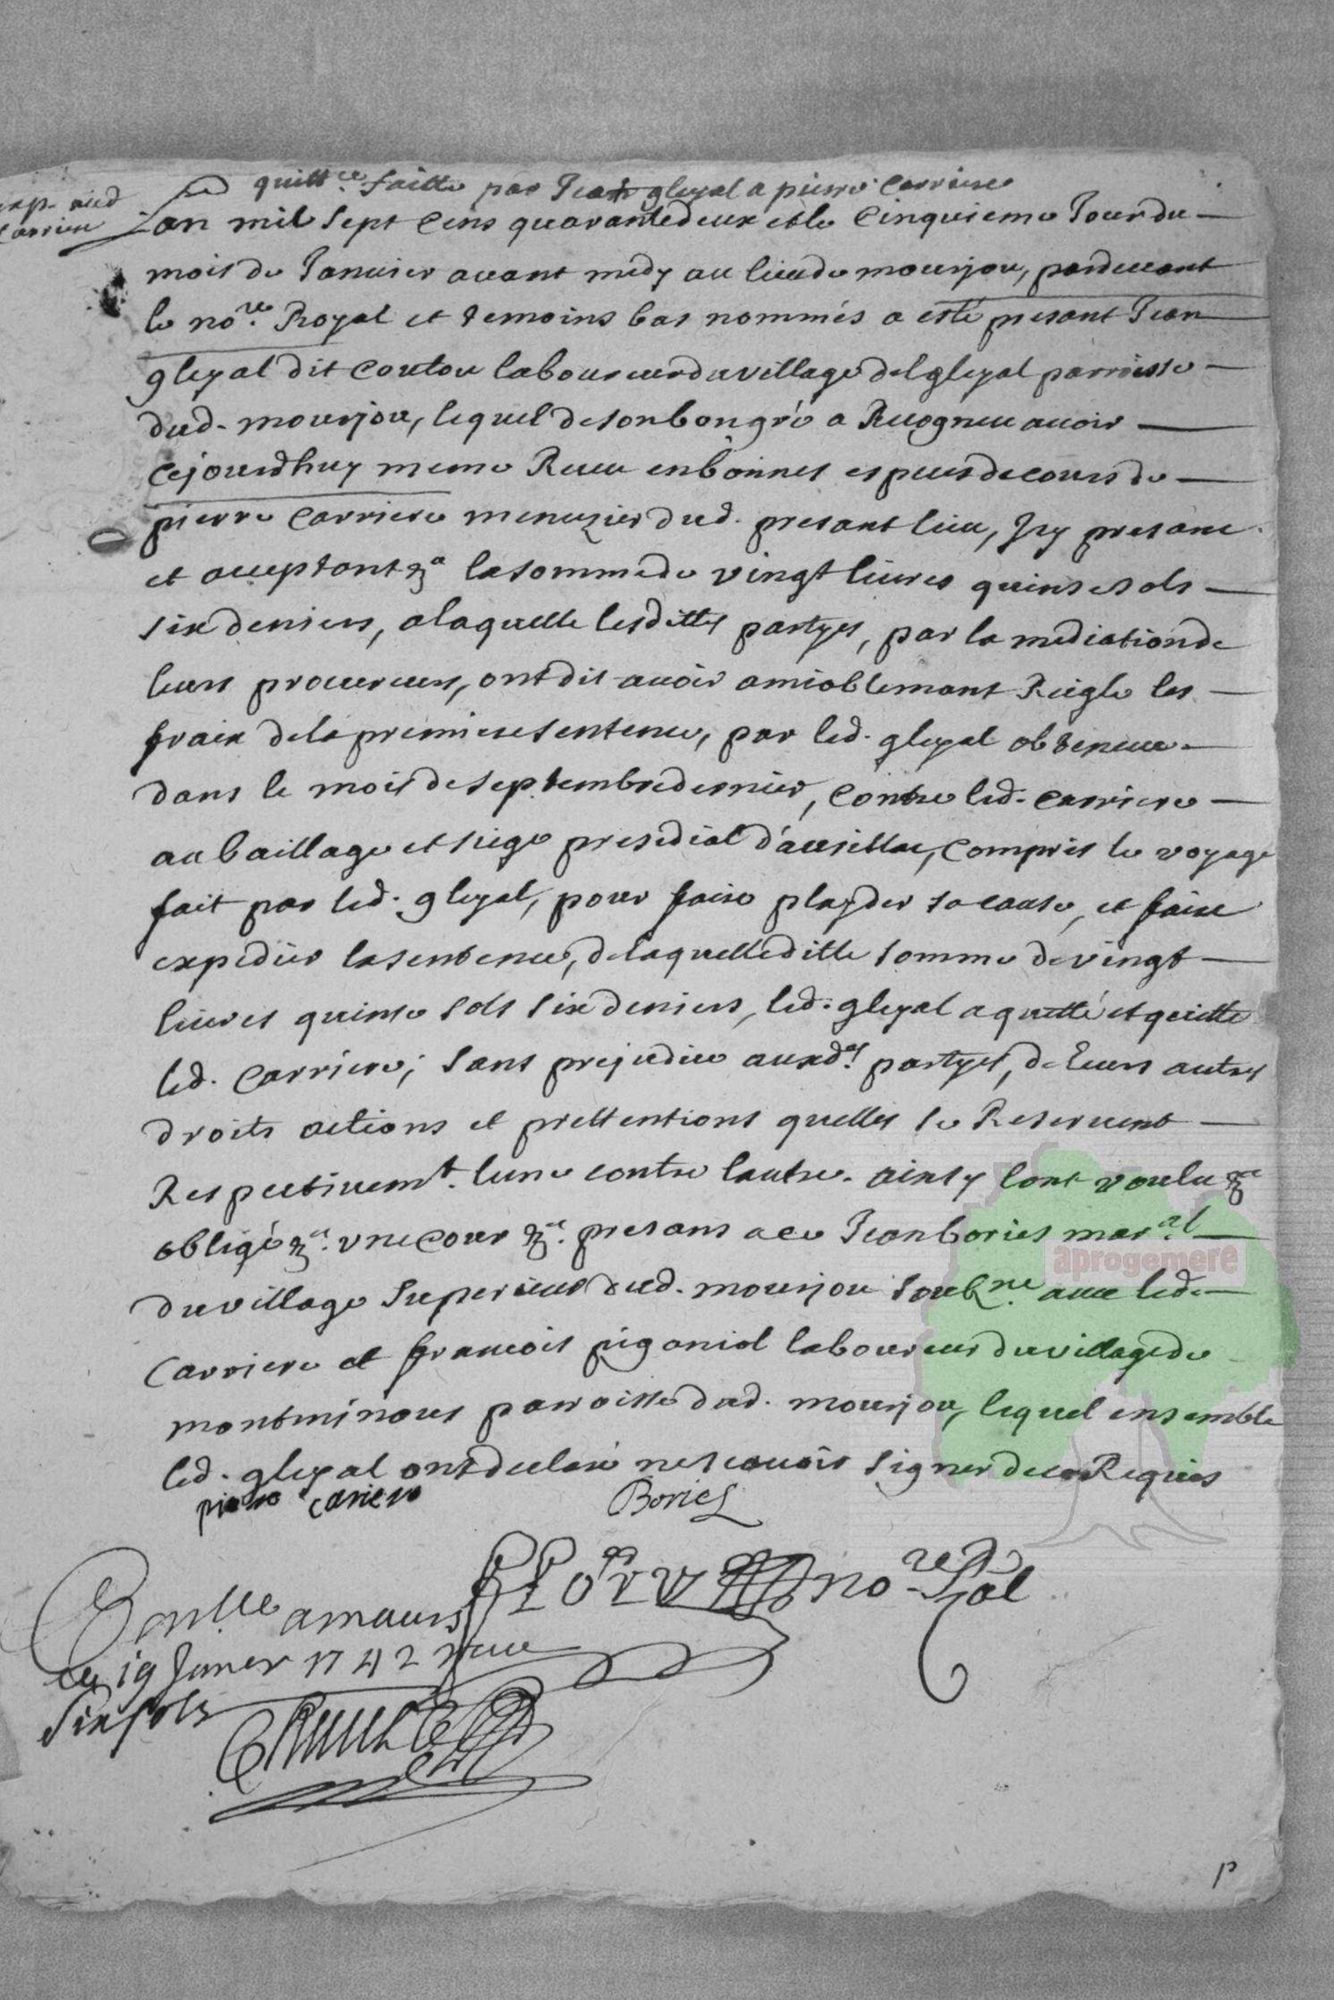 exp. aud
Carriere
quitt.ce faitte par Jean gleyal a pierre Carriere
Lan mil sept cens quarantedeux et le Cinquieme Jour du
mois de Januier auant midy au lieu de mourjou, pardeuant
le no.re Royal et temoins bas nommés a esté presant Jean
gleyal dit Coutou laboureur du village del gleyal parroisse
dud. mourjou, lequel de son bon gré a Recogneu auoir
cejourdhuy meme Receu en bonnes especes de cours de
pierre Carriere menuzier dud. presant lieu, Jcy presant
et acceptant &a la somme de vingt liures quinse sols
six deniers, a laquelle lesdittes partyes, par la mediation de
leurs procureurs, ont dit auoir amiablemant Reigle les
fraix de la premiere sentence, par led. gleyal obtenue
dans le mois de septembre dernier, contre led. Carriere
au baillage et siege presidial d'aurillac, compris le voyage
fait par led. gleyal, pour faire playder sa cause, et faire
expedier la sentence, de laquelle ditte somme de vingt
liures quinse sols six deniers, led. gleyal a quitté et quitte
led. Carriere, sans prejudice auxd.es partyes, de leurs autres
droits actions et prettentions quelles se Reseruent
Respectiuem.t lune contre lautre. ainsy lont voulu &a
obligé &a. vne cour &a. presans a ce Jean bories mar.al
du village Superieur dud. mourjou soubs.ne auec led.
Carriere et françois piganiol laboureur du village de
montminous parroisse dud. mourjou, lequel ensemble
led. gleyal ont declaré ne scauoir signer de ce Requis
piere cariere
Bories
no.re Ral
Con.lle a maurs
le 19 Janer 1742 receu
Six sols
p
aprogemere